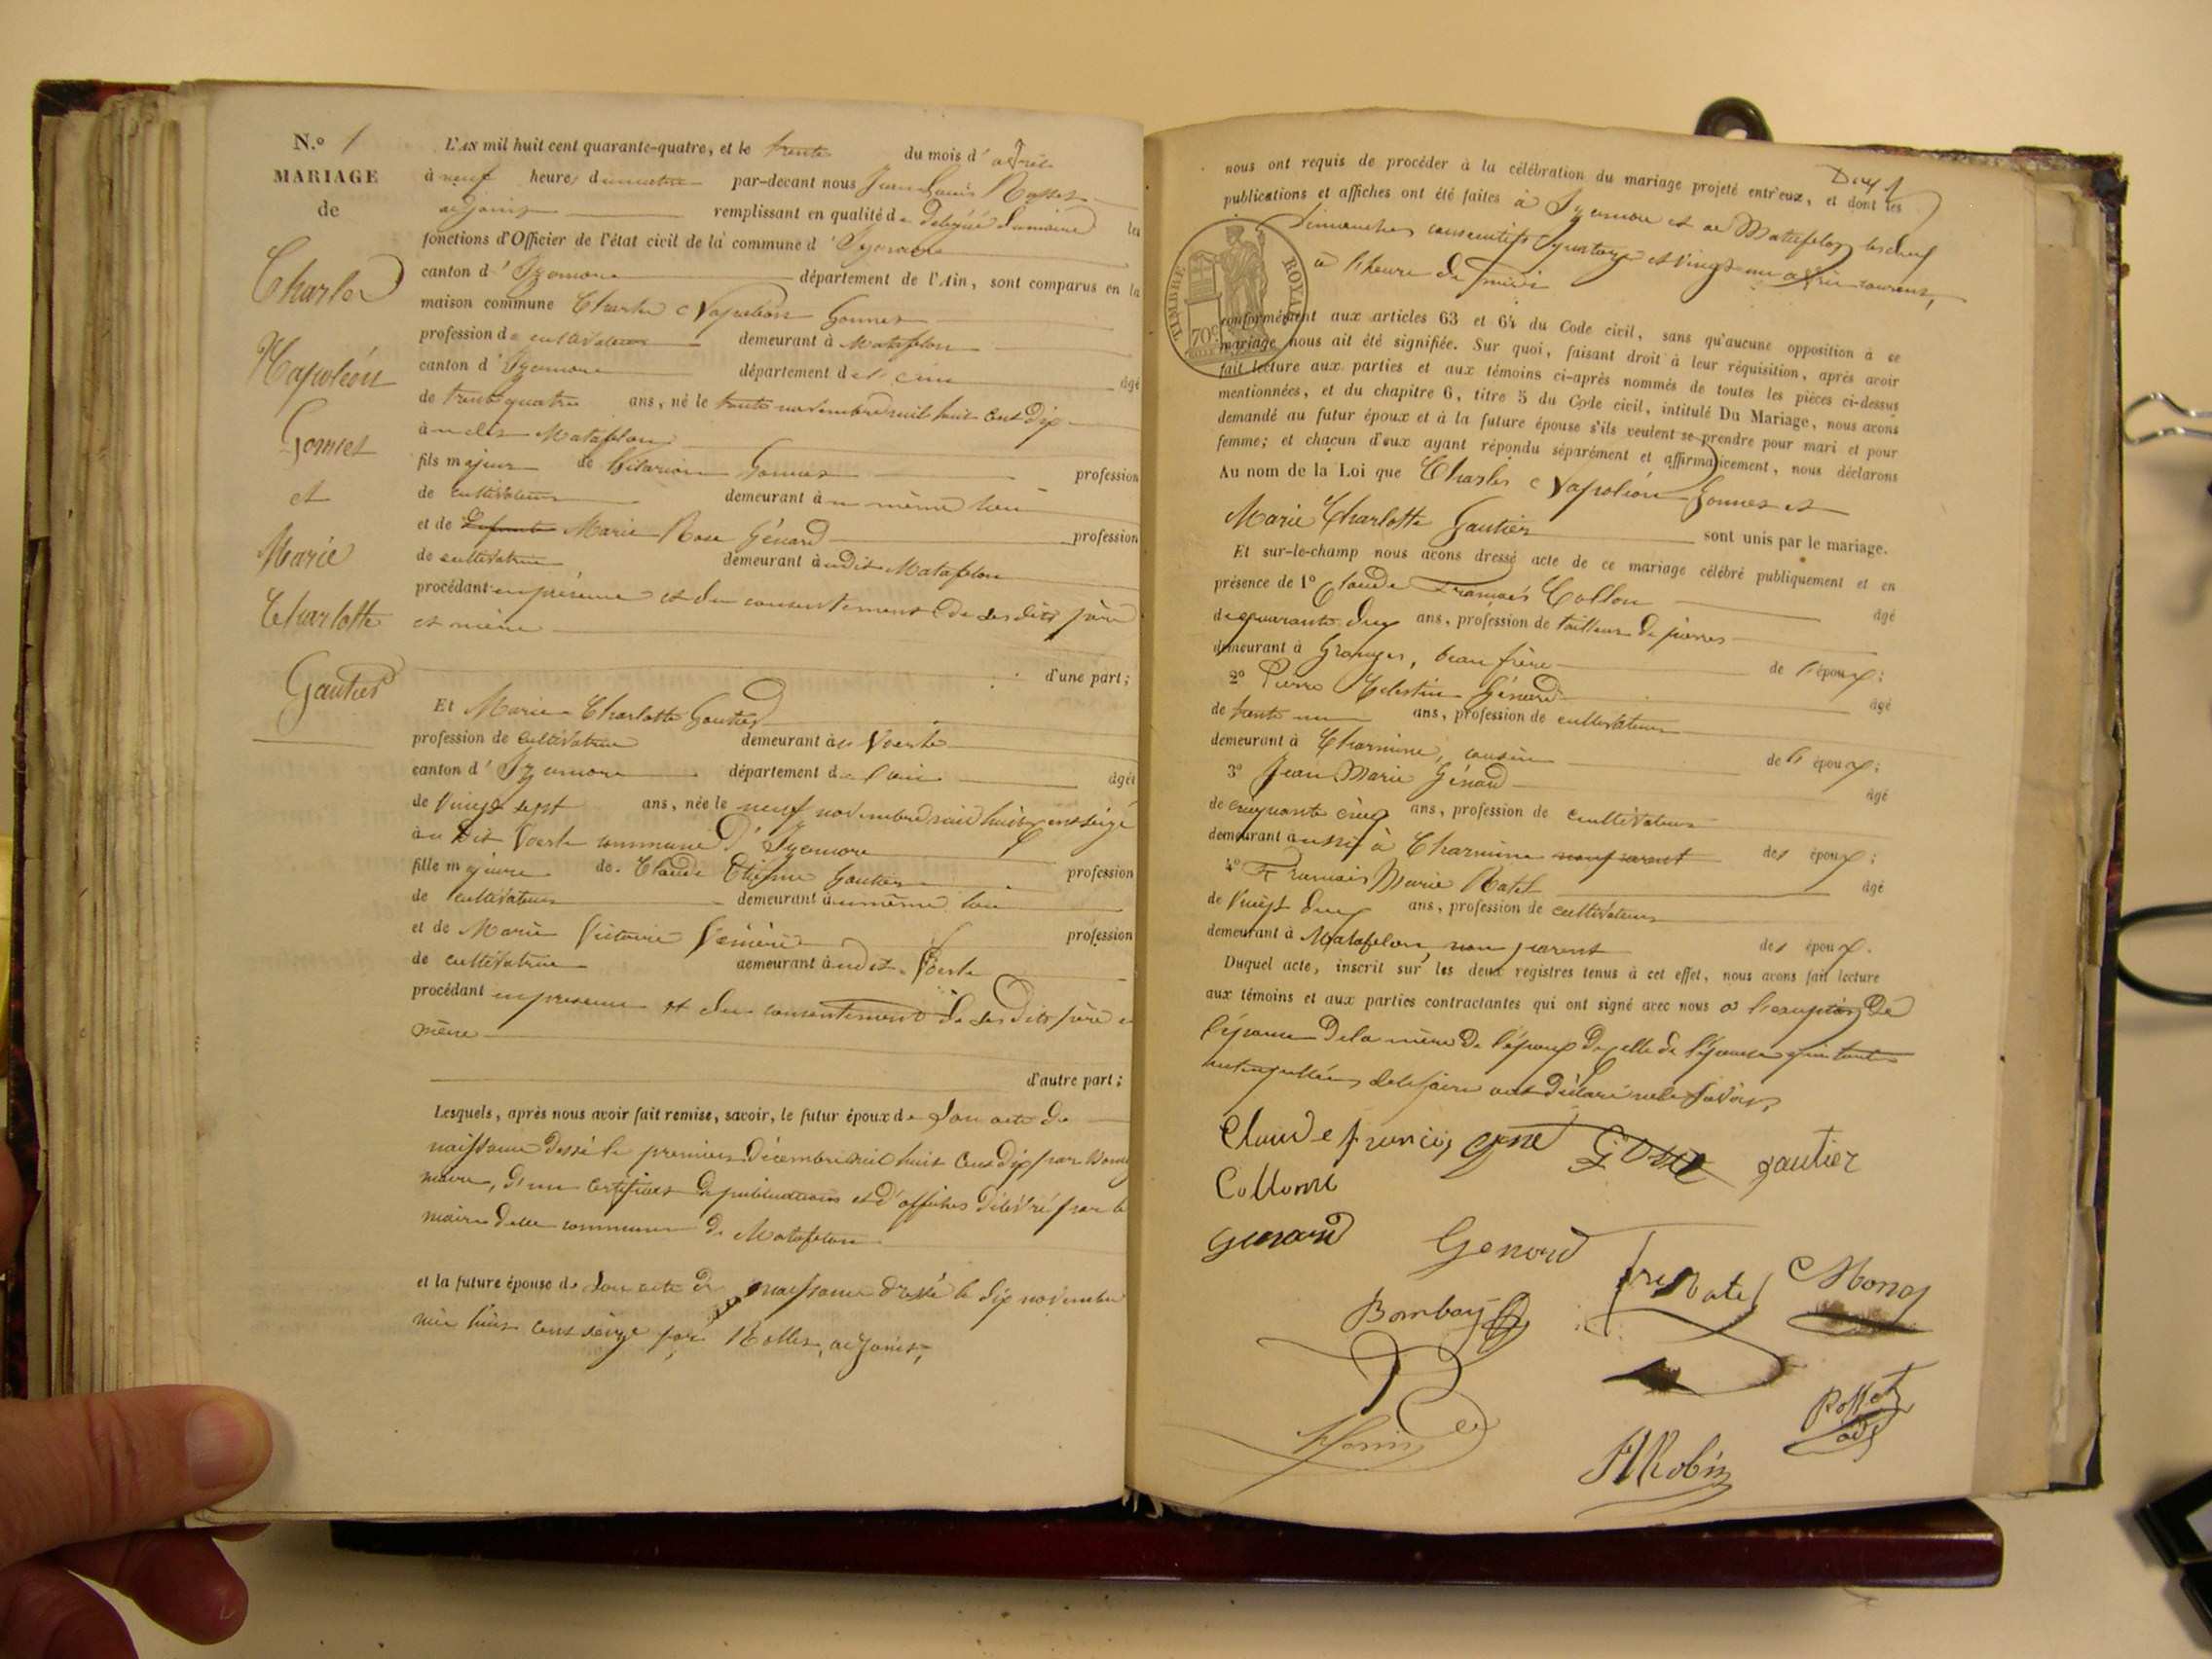 N.o 1
MARIAGE
de
Charles
Napoléon
Gonnet
et
Marie
Charlotte
Gautier
L'AN mil huit cent quarante-quatre, et le trente du mois d' avril
à neuf heures du matin par-devant nous Jean Louis Rosset
adjoint remplissant en qualité de délégué du maire les
fonctions d'Officier de l'état civil de la commune d' Izernore
canton d' Izernore département de l'Ain, sont comparus en la
maison commune Charles Napoléon Gonnet
profession de cultivateur demeurant à Matafelon
canton d' Izernore département de l'ain âgé
de trente quatre ans, né le trente novembre mil huit cent dix
à Matafelon
fils majeur de hilarion Gonnet profession
de cultivateur demeurant au même lieu
et de Marie Rose Génard profession
de cultivatrice demeurant audit Matafelon
procédant en présence et du consentement de ses dits père
et mère
d'une part;
Et Marie Charlotte Gautier
profession de cultivatrice demeurant à Voerle
canton d' Izernore département de l'ain âgée
de vingt sept ans, née le neuf novembre mil huit cent seize
au dit Voerle commune d' Izernore
fille majeure de Claude Etienne Gautier profession
de cultivateur demeurant au même lieu
et de Marie Victoire profession
de cultivatrice demeurant audit Voerle
procédant en présence et du consentement de ses dits père et
mère
d'autre part;
Lesquels, après nous avoir fait remise, savoir, le futur époux de son acte de
naissance dressé le premier décembre mil huit cent dix par
maire, d'un certificat de publications et d'affiches délivré par le
maire de la commune de Matafelon
et la future épouse de son acte de naissance dressé le dix novembre
mil huit cent seize par adjoint,
nous ont requis de procéder à la célébration du mariage projeté entr'eux, et dont les
publications et affiches ont été faites à Izernore et à Matafelon les deux
dimanches consécutifs quatorze et vingt un avril courant,
à l'heure de midi
TIMBRE ROYAL
70 c
conformément aux articles 63 et 64 du Code civil, sans qu'aucune opposition à ce
mariage nous ait été signifiée. Sur quoi, faisant droit à leur réquisition, après avoir
fait lecture aux parties et aux témoins ci-après nommés de toutes les pièces ci-dessus
mentionnées, et du chapitre 6, titre 5 du Code civil, intitulé Du Mariage, nous avons
demandé au futur époux et à la future épouse s'ils veulent se prendre pour mari et pour
femme; et chacun d'eux ayant répondu séparément et affirmativement, nous déclarons
Au nom de la Loi que Charles Napoléon Gonnet et
Marie Charlotte Gautier sont unis par le mariage.
Et sur-le-champ nous avons dressé acte de ce mariage célébré publiquement et en
présence de 1o Claude François Collon âgé
de quarante deux ans, profession de tailleur de pierres
demeurant à Granges, beau frère de l'époux;
2o Pierre Célestin Génard âgé
de trente un ans, profession de cultivateur
demeurant à Charmine, cousin de l'époux;
3o Jean Marie Génard âgé
de cinquante cinq ans, profession de cultivateur
demeurant aussi à Charmine des époux;
4o François Marie Ratel âgé
de vingt deux ans, profession de cultivateur
demeurant à Matafelon, non parent des époux.
Duquel acte, inscrit sur les deux registres tenus à cet effet, nous avons fait lecture
aux témoins et aux parties contractantes qui ont signé avec nous à l'exception de
l'épouse de la mère de l'époux de celle de l'épouse qui toutes
interpellées de le faire ont déclaré ne le savoir,
Claude françois gautier
Collomb
genard Genord
Bombay
Robin